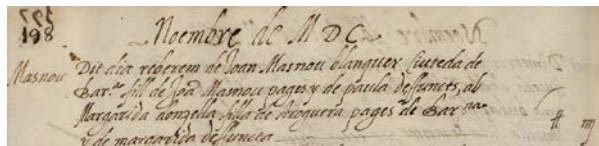 197
198
Noembre de M D C
Masnou
Dit dia reberem de Joan Masnou blanquer Ciutedá de
Bar.ª fill de Joā Masnou pages y de paula deffuncts, ab
Margarida donzella filla de Noguera pages de Bar.na
y de margarida deffuncta